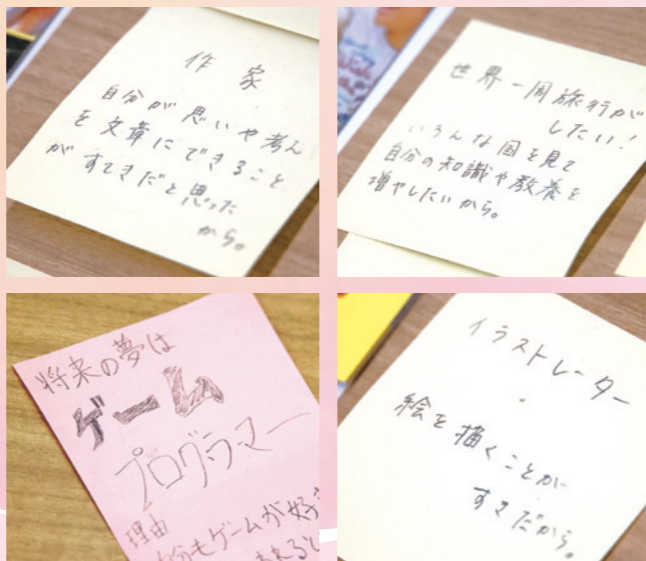 作家
自分が思いや考え
を文章にできること
がすてきだと思った
から。
世界一周旅行が
したい!
いろんな国を見て
自分の知識や教養を
増やしたいから。
将来の夢は
ゲーム
プログラマー
理由
自分もゲームが好き
イラストレーター
絵を描くことが
すきだから。